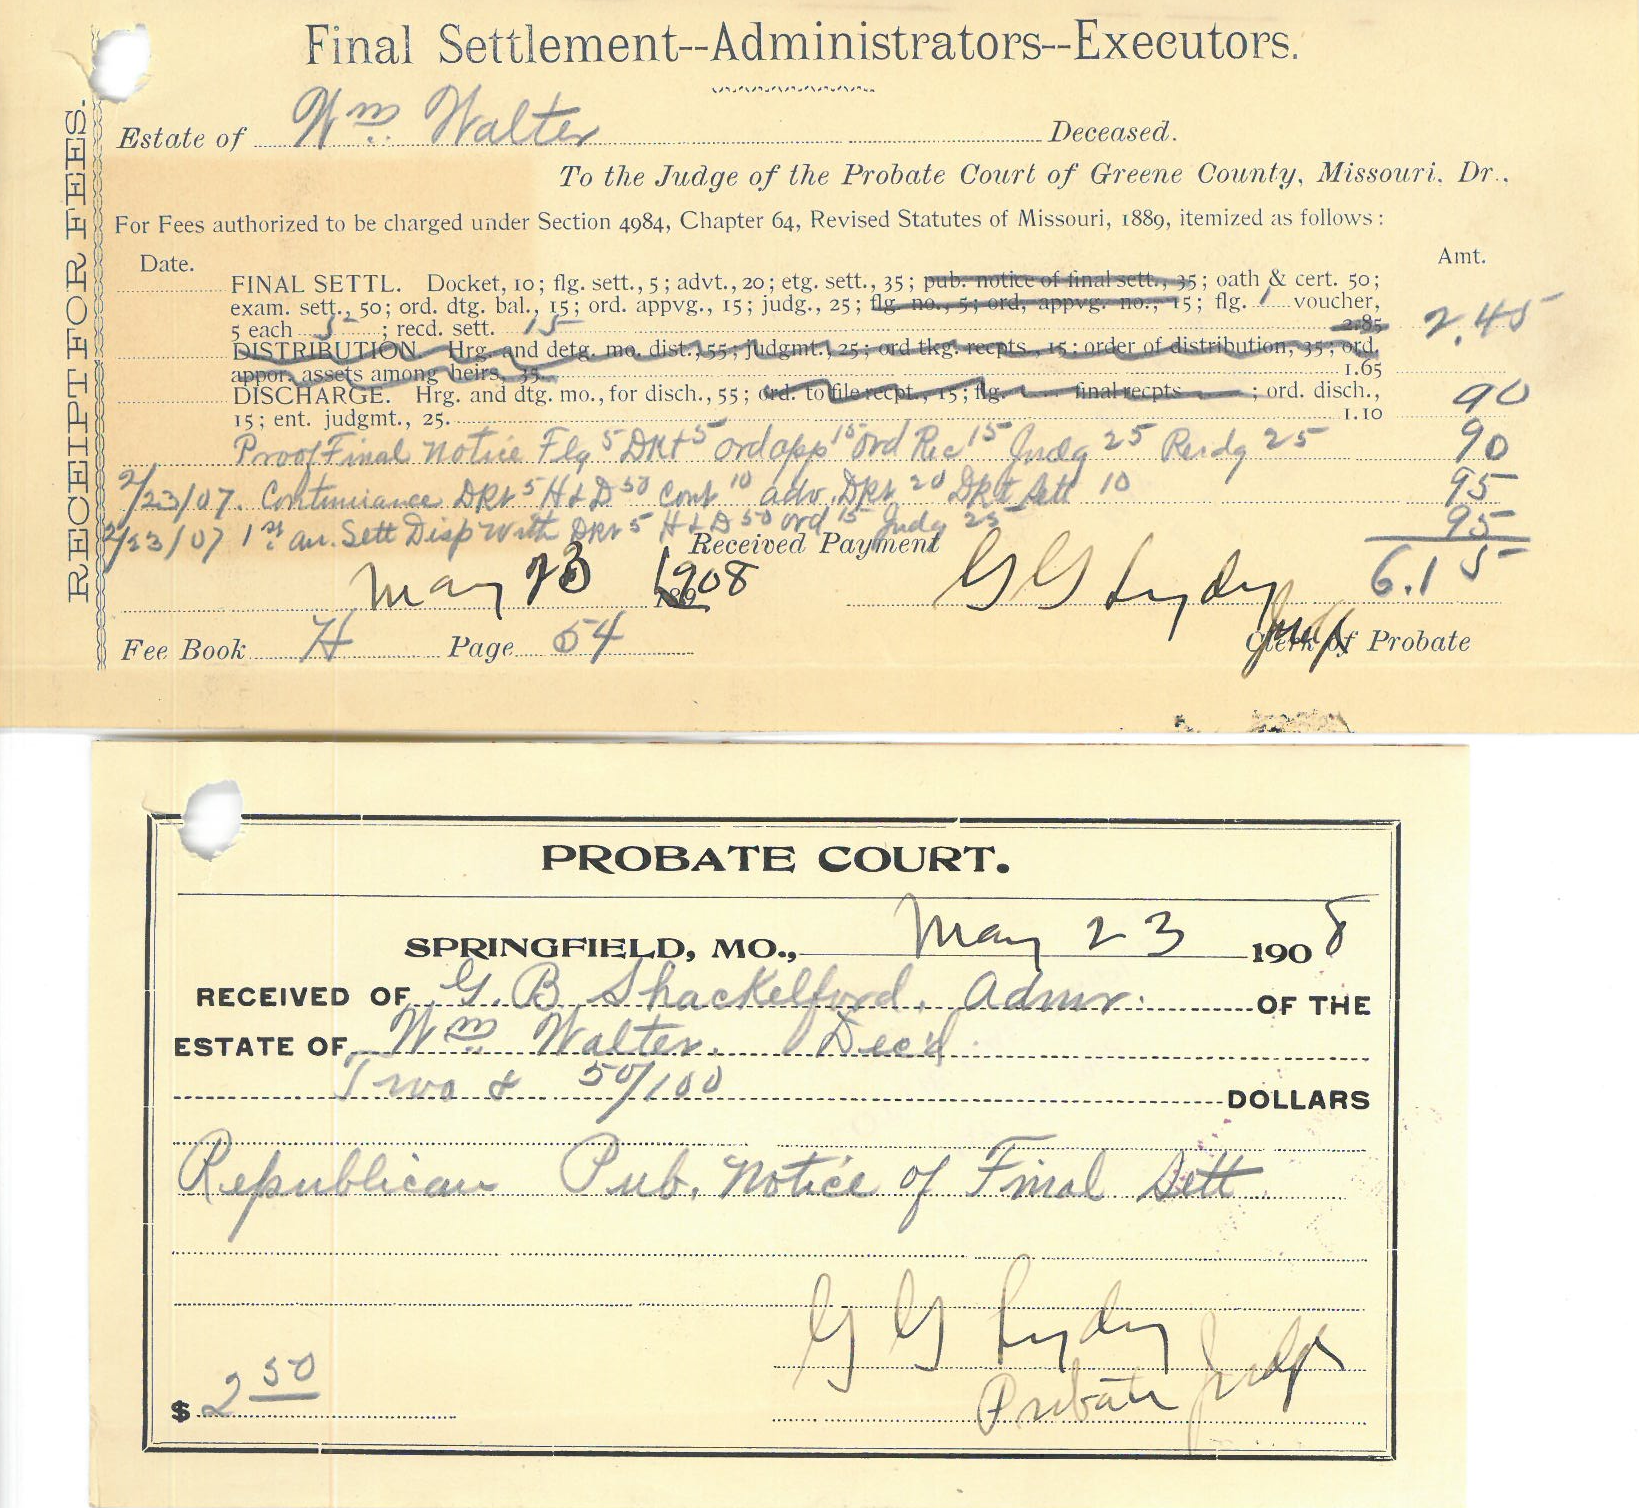 RECEIPT FOR FEES.
Final Settlement--Administrators--Executors.
Estate of Wm. Walter Deceased.
To the Judge of the Probate Court of Greene County, Missouri. Dr..
For Fees authorized to be charged under Section 4984, Chapter 64, Revised Statutes of Missouri, 1889, itemized as follows:
Date. Amt.
FINAL SETTL. Docket, 10; flg. sett., 5; advt., 20; etg. sett., 35; pub. notice of final sett., 35; oath & cert. 50;
exam. sett., 50; ord. dtg. bal., 15; ord. appvg., 15; judg., 25; flg. no., 5; ord, appvg. no., 15; flg. 1 voucher,
5 each 5; recd. sett. 15 2.85 2.45
DISTRIBUTION. Hrg. and detg. mo. dist., 55; judgmt., 25; ord tkg. recpts., 15; order of distribution, 35; ord.
appor. assets among heirs, 35. 1.65
DISCHARGE. Hrg. and dtg. mo., for disch., 55; ord. to file recpt., 15; flg. final recpts ; ord. disch.,
15; ent. judgmt., 25. 1.10 90
Proof Final Notice Flg 5 Dkt 5 ord app 15 ord Rec 15 Judg 25 Recdg 25 90
2/23/07. Continuance Dkt 5 H & D 50 Cont 10 adv. Dkt 20 Dkt Sett 10 95
2/23/07 1st an. Sett Disp with Dkt 5 H & D 50 ord 15 Judg 25 95
Received Payment 6.15
May 23 1908 189 G G Lydy
Judge
Fee Book H Page 54 Clerk of Probate
PROBATE COURT.
SPRINGFIELD, MO., May 23 1908
RECEIVED OF G. B. Shackelford, Admr. OF THE
ESTATE OF Wm. Walter. Dec'd.
Two & 50/100 DOLLARS
Republican Pub. Notice of Final Sett
G G Lydy
$ 2 50 Probate Judge